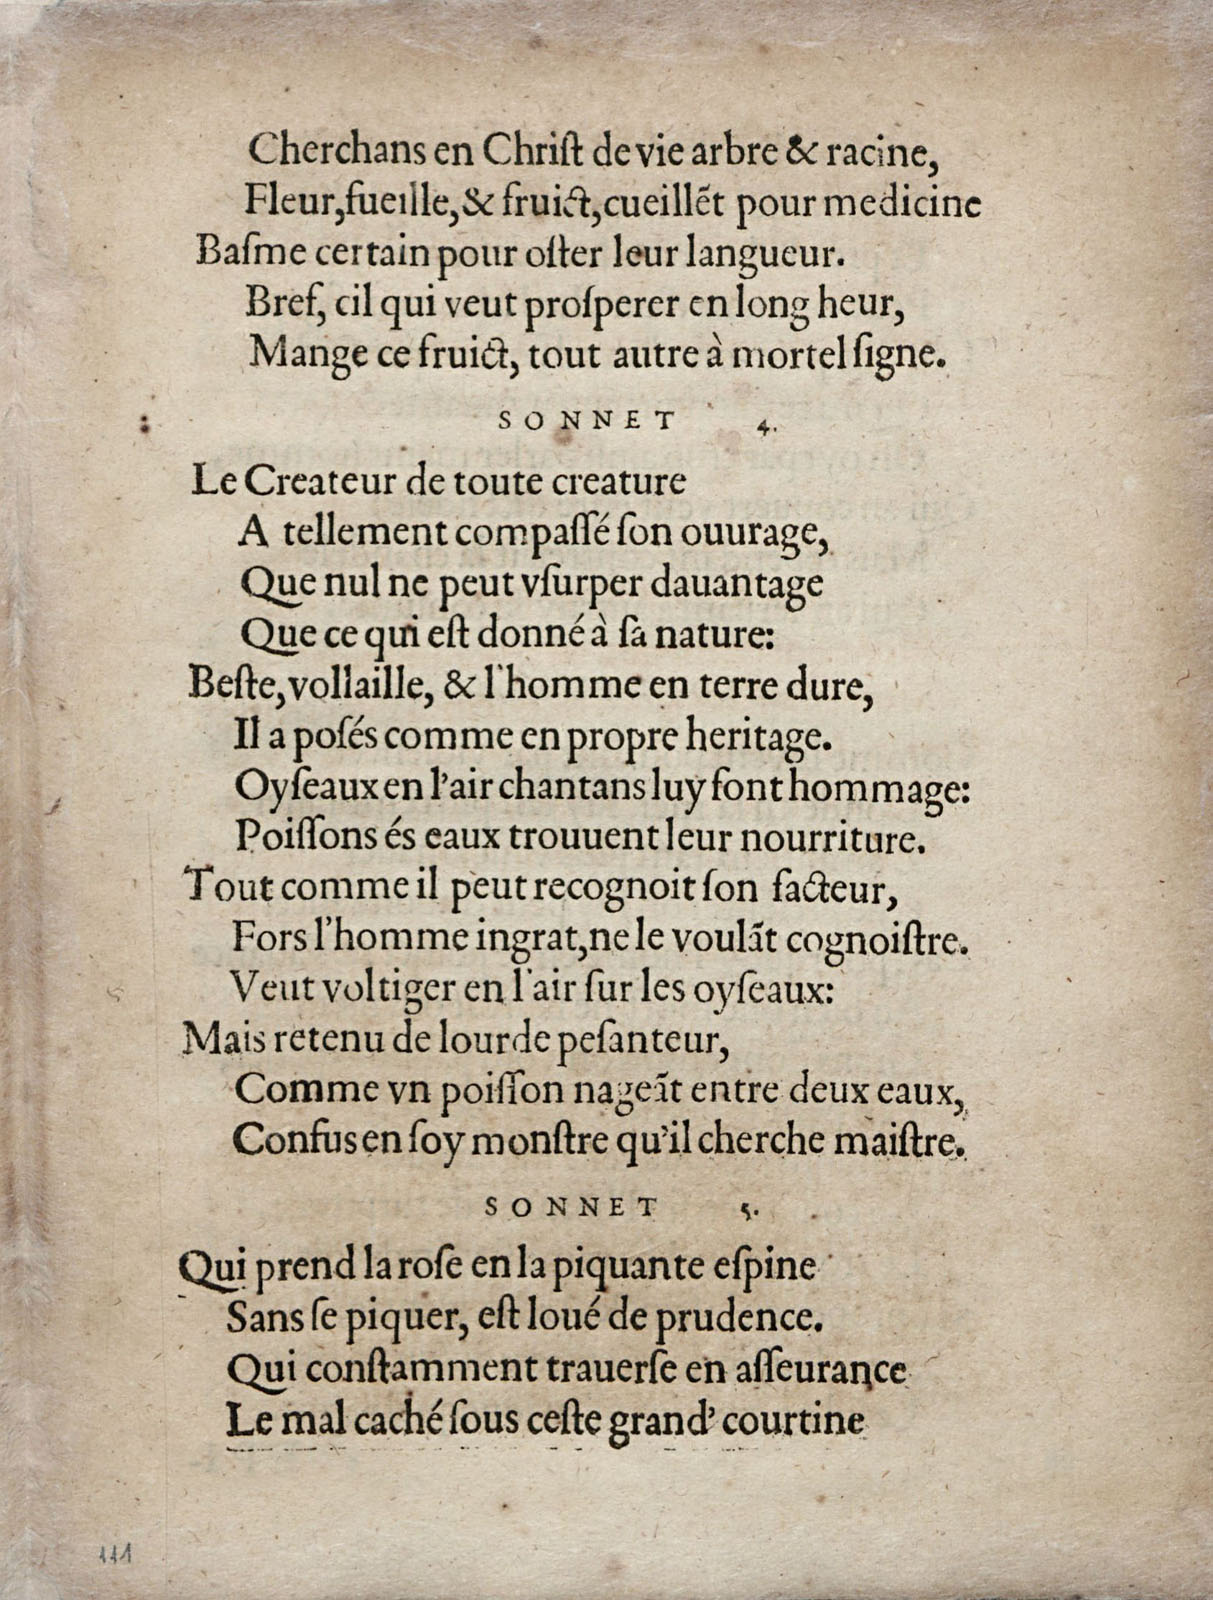 Cherchans en Chriſt de vie arbre & racine,
Fleur, fueille, & fruict, cueillẽt pour medicine
Baſme certain pour oſter leur langueur.
Bref, cil qui veut proſperer en long heur,
Mange ce fruict, tout autre à mortel ſigne.
SONNET 4.
Le Createur de toute creature
A tellement compaſſé ſon ouurage,
Que nul ne peut vſurper dauantage
Que ce qui eſt donné à ſa nature:
Beſte, vollaille, & l'homme en terre dure,
Il a poſés comme en propre heritage.
Oyſeaux en l'air chantans luy font hommage:
Poiſſons és eaux trouuent leur nourriture.
Tout comme il peut recognoit ſon facteur,
Fors l'homme ingrat, ne le voulãt cognoiſtre.
Veut voltiger en l'air ſur les oyſeaux:
Mais retenu de lourde peſanteur,
Comme vn poiſſon nageãt entre deux eaux,
Confus en ſoy monſtre qu'il cherche maiſtre.
SONNET 5.
Qui prend la roſe en la piquante eſpine
Sans ſe piquer, eſt loué de prudence.
Qui conſtamment trauerſe en aſſeurance
Le mal caché ſous ceſte grand' courtine
111